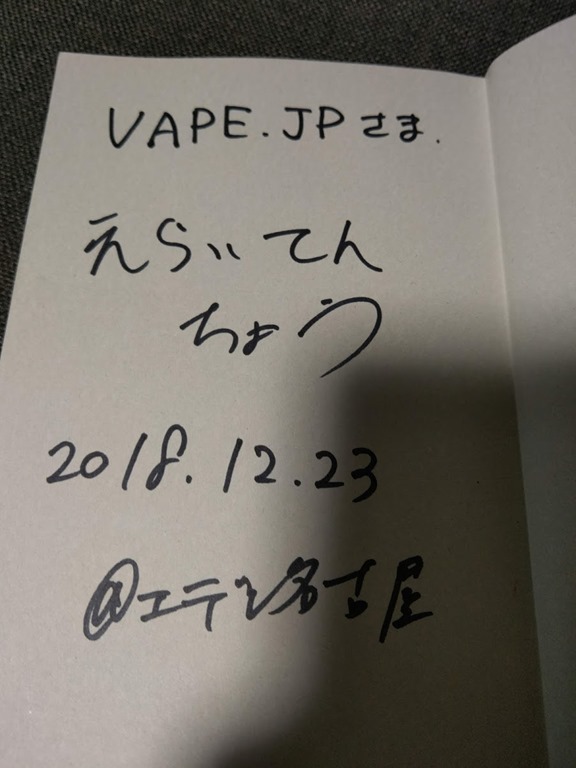 VAPE.JPさま.
えらいてん
ちょう
2018.12.23
@エデン名古屋